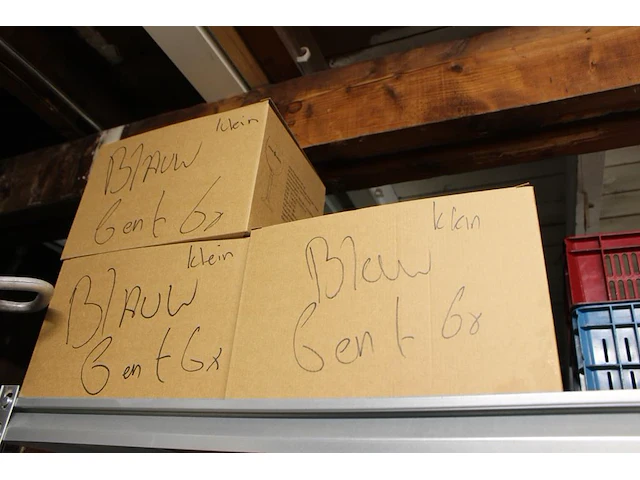 klein
BlAUW
Gent 6x
klein
BlAUW
Gent 6x
klein
Blauw
Gent 6x